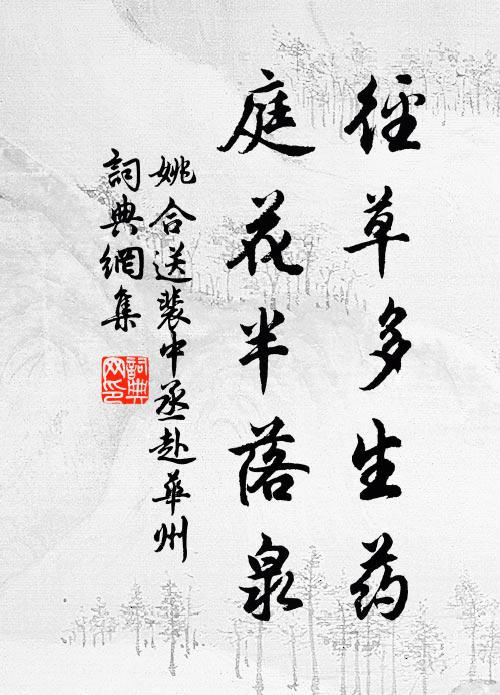 徑草多生药
庭花半落泉
姚合送裴中丞赴華州
詞典網集
詞典网印